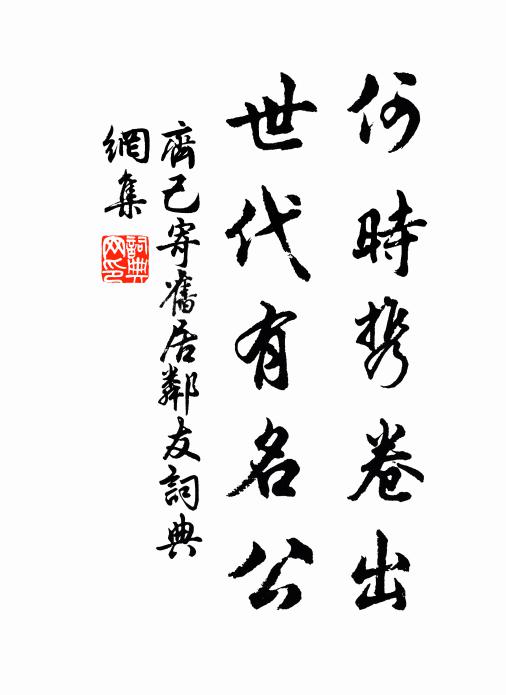 何時携卷出
世代有名公
齊己寄舊居鄰友詞典
網集
詞典
网印